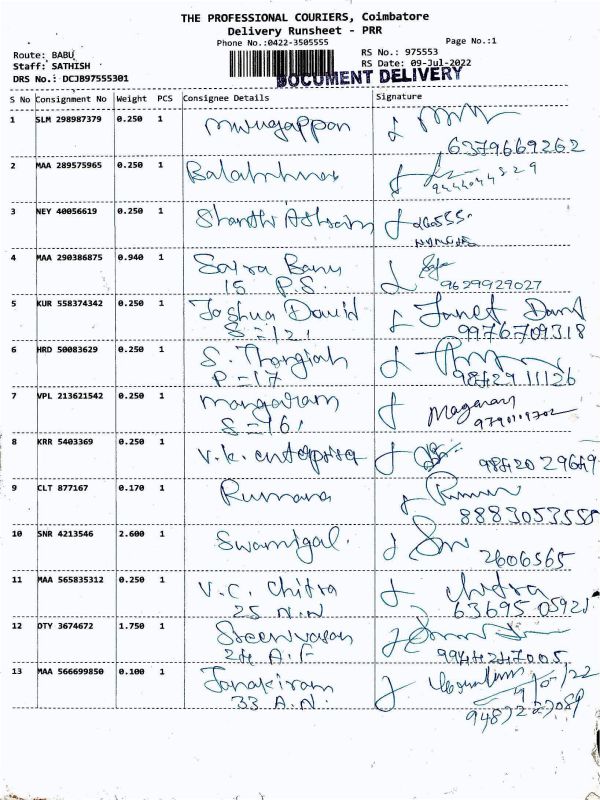 THE PROFESSIONAL COURIERS, Coimbatore
Delivery Runsheet - PRR
Phone No.:0422-3505555 Page No.:1
Route: BABU RS No.: 975553
Staff: SATHISH RS Date: 09-Jul-2022
DRS No.: DCJB97555301 DOCUMENT DELIVERY
S No Consignment No Weight PCS Consignee Details Signature
1 SLM 298987379 0.250 1 Murugappan
6379669262
2 MAA 289575965 0.250 1
3 NEY 40056619 0.250 1 Shanthi Ashram
4 MAA 290386875 0.940 1 Saira Banu
15 P.S. 9629929027
5 KUR 558374342 0.250 1 Joshua David Janet David
S = 121 9976709318
6 HRD 50083629 0.250 1 S. Thangiah
P = 17 98429 11126
7 VPL 213621542 0.250 1 mangaram
S = 161
8 KRR 5403369 0.250 1 V.K. enterprise 98420 29649
9 CLT 877167 0.170 1 Rumana
8883053558
10 SNR 4213546 2.600 1 Swamigal.
2606565
11 MAA 565835312 0.250 1 V.C. Chitra chitra
25 N.N 63695 05921
12 OTY 3674672 1.750 1 Sreenivasan
24 A.F 9944247005
13 MAA 566699850 0.100 1 Janakiram
33 A.N.